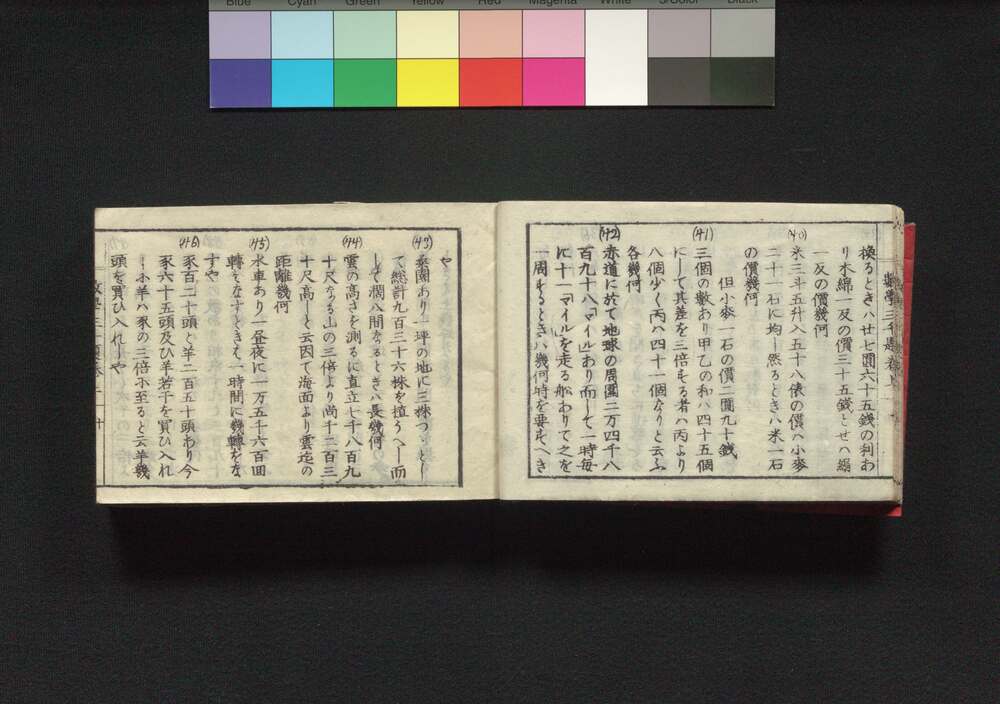 Blue Cyan Green Yellow Red Magenta White 3/Color Black
數學三千題 卷上
換るときハ廿七圓六十五錢の利あ
り木綿一反の價三十五錢とせハ絹
一反の價幾何
(40)
米三斗五升入五十八俵の價ハ小麥
二十一石に均し然るときハ米一石
の價幾何
但小麥一石の價二圓九十錢
(41)
三個の數あり甲乙の和ハ四十五個
にして其差を三倍する者ハ丙より
八個少く丙ハ四十一個なりと云ふ
各幾何
(42)
赤道に於て地球の周圍二万四千八
百九十八「マイル」あり而して一時毎
に十一「マイル」を走る舩ありて之を
一周するときハ幾何時を要すべき
や
(43)
桑園あり一坪の地に三株つゝとし
て総計九百三十六株を植うへし而
して濶八間なるときハ長幾何
(44)
雲の高さを測るに直立七千八百九
十尺なる山の三倍より尚千二百三
十尺高しと云因て海面より雲迄の
距離幾何
(45)
水車あり一昼夜に一万五千六百回
轉をなすときハ一時間に幾轉をな
すや
(46)
豕百二十頭と羊二百五十頭あり今
豕六十五頭及ひ羊若干を買ひ入れ
しに羊ハ豕の三倍に至ると云羊幾
頭を買ひ入れしや